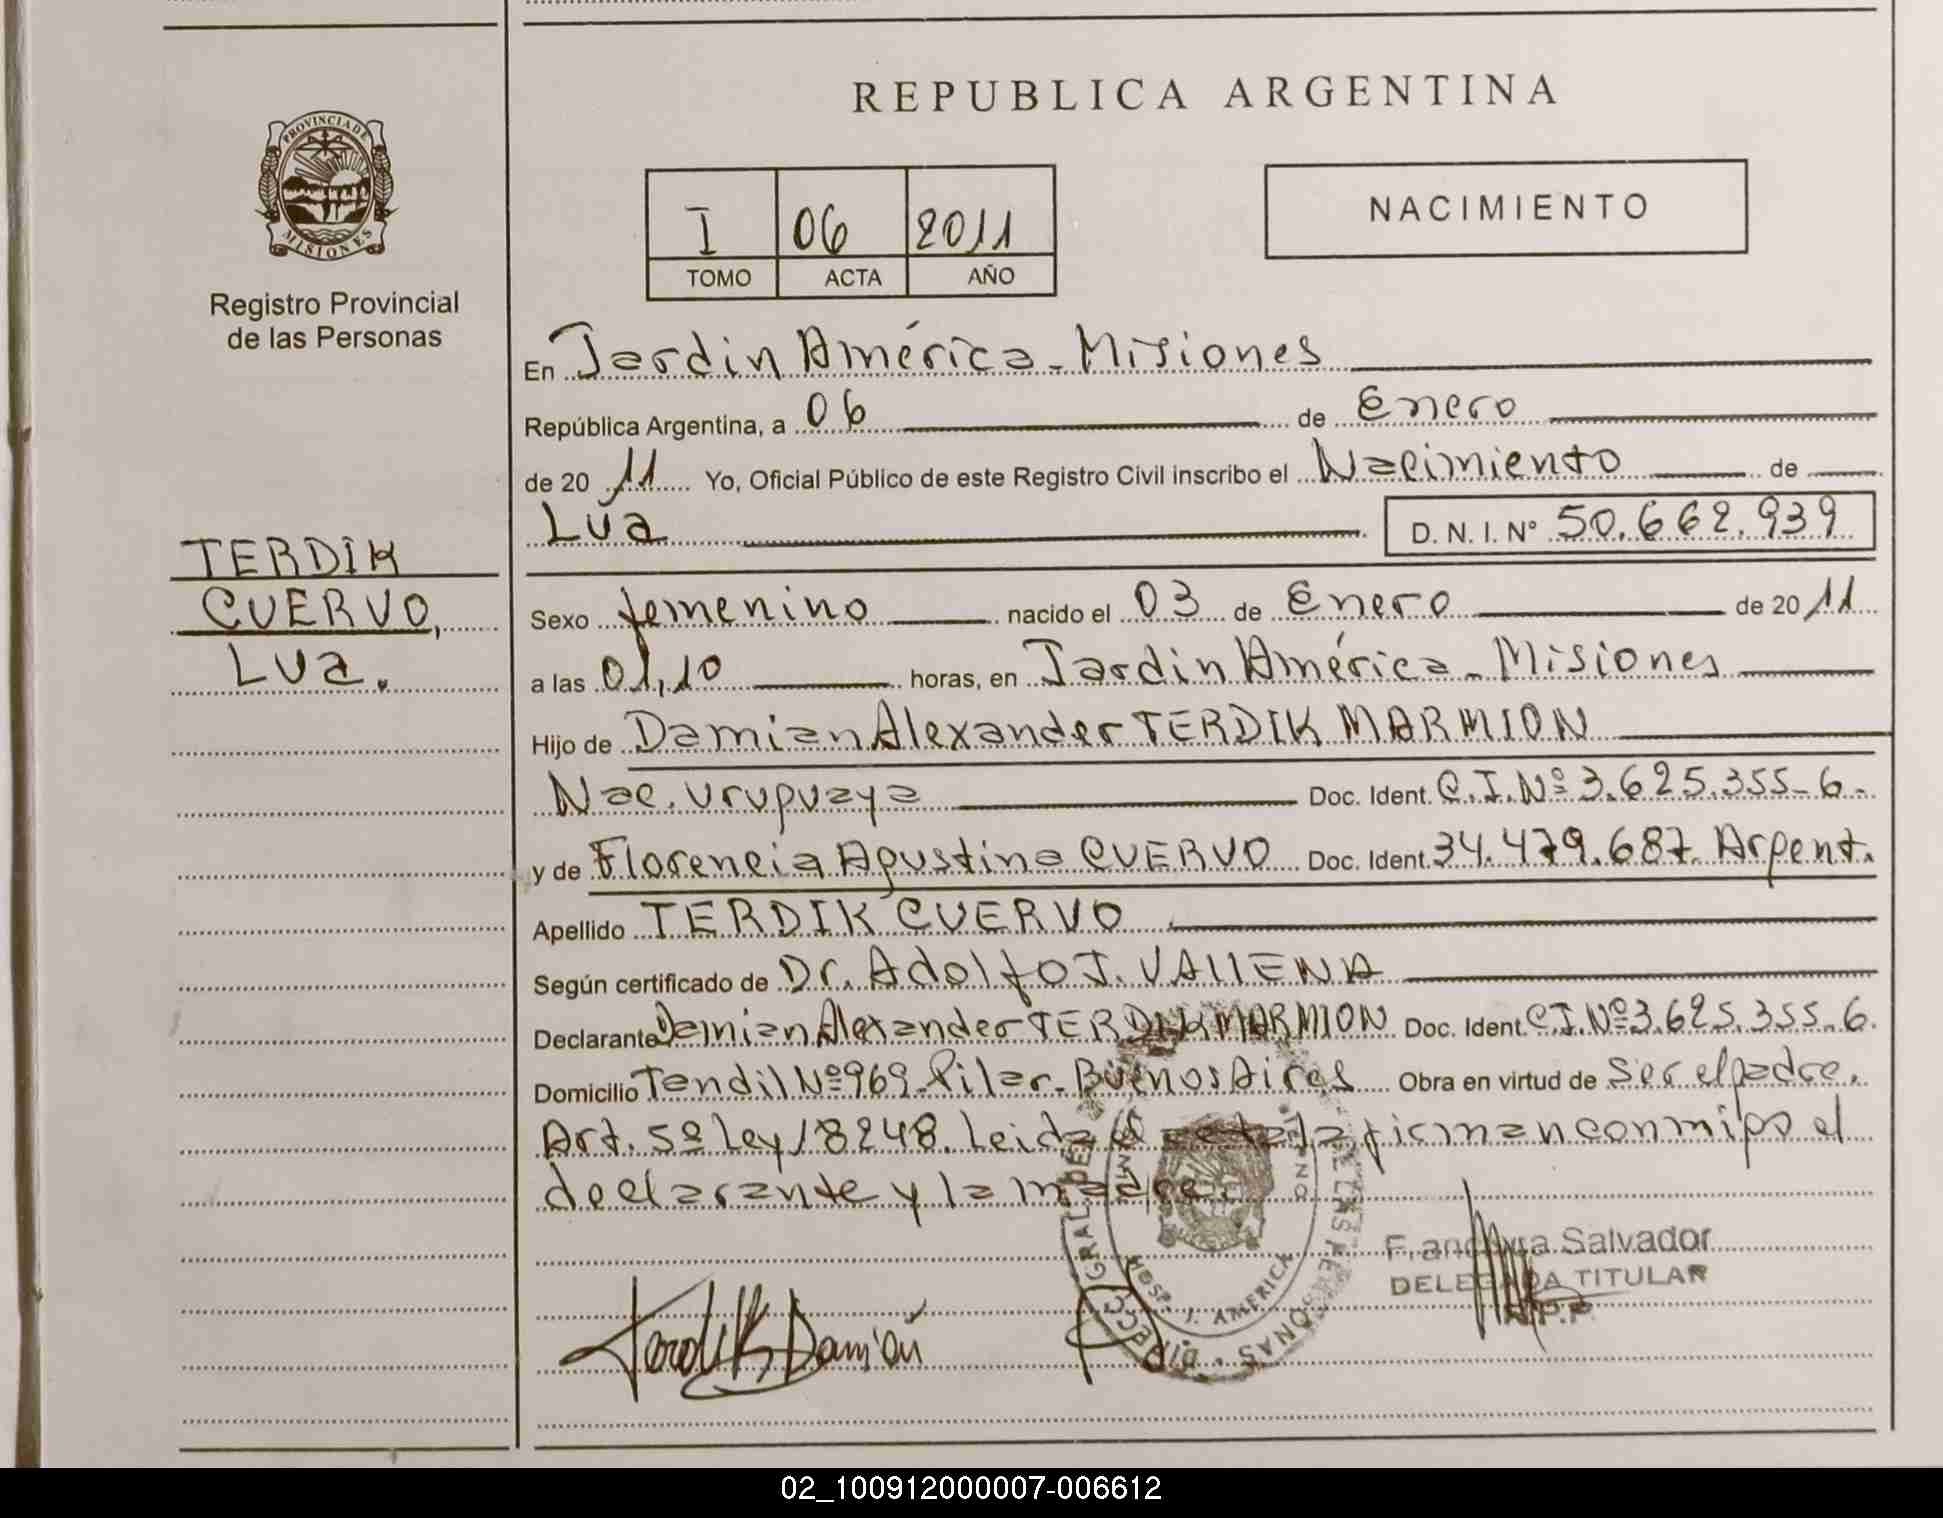 REPUBLICA ARGENTINA
PROVINCIA DE
MISIONES
Registro Provincial
de las Personas
I 06 2011
TOMO ACTA AÑO
NACIMIENTO
TERDIK
CUERVO,
Lua.
En Jardin América - Misiones
República Argentina, a 06 de Enero
de 2011 Yo, Oficial Público de este Registro Civil inscribo el Nacimiento de
Lúa D. N. I. Nº 50.662.939
Sexo femenino nacido el 03 de Enero de 2011
a las 01,10 horas, en Jardin América - Misiones
Hijo de Damian Alexander TERDIK MARMION
Nac. uruguaya Doc. Ident. C.I. Nº 3.625.355-6-
y de Florencia Agustina CUERVO Doc. Ident. 34.479.687. Argent.
Apellido TERDIK CUERVO
Según certificado de Dr. Adolfo J. VAllENA
Declarante Damian Alexander TERDIK MARMION Doc. Ident. C.I. Nº 3.625.355-6.
Domicilio Tandil Nº 969 - Pilar - Buenos Aires Obra en virtud de Ser el padre.
Art. 5º Ley 18248. Leida el acta la firman conmigo el
declarante y la madre.
Salvador
DELEGADA TITULAR
R.P.P.
Terdik Damián
DIRECC GRAL DE LAS PERSONAS
HOSP. J. AMERICA
02_100912000007-006612